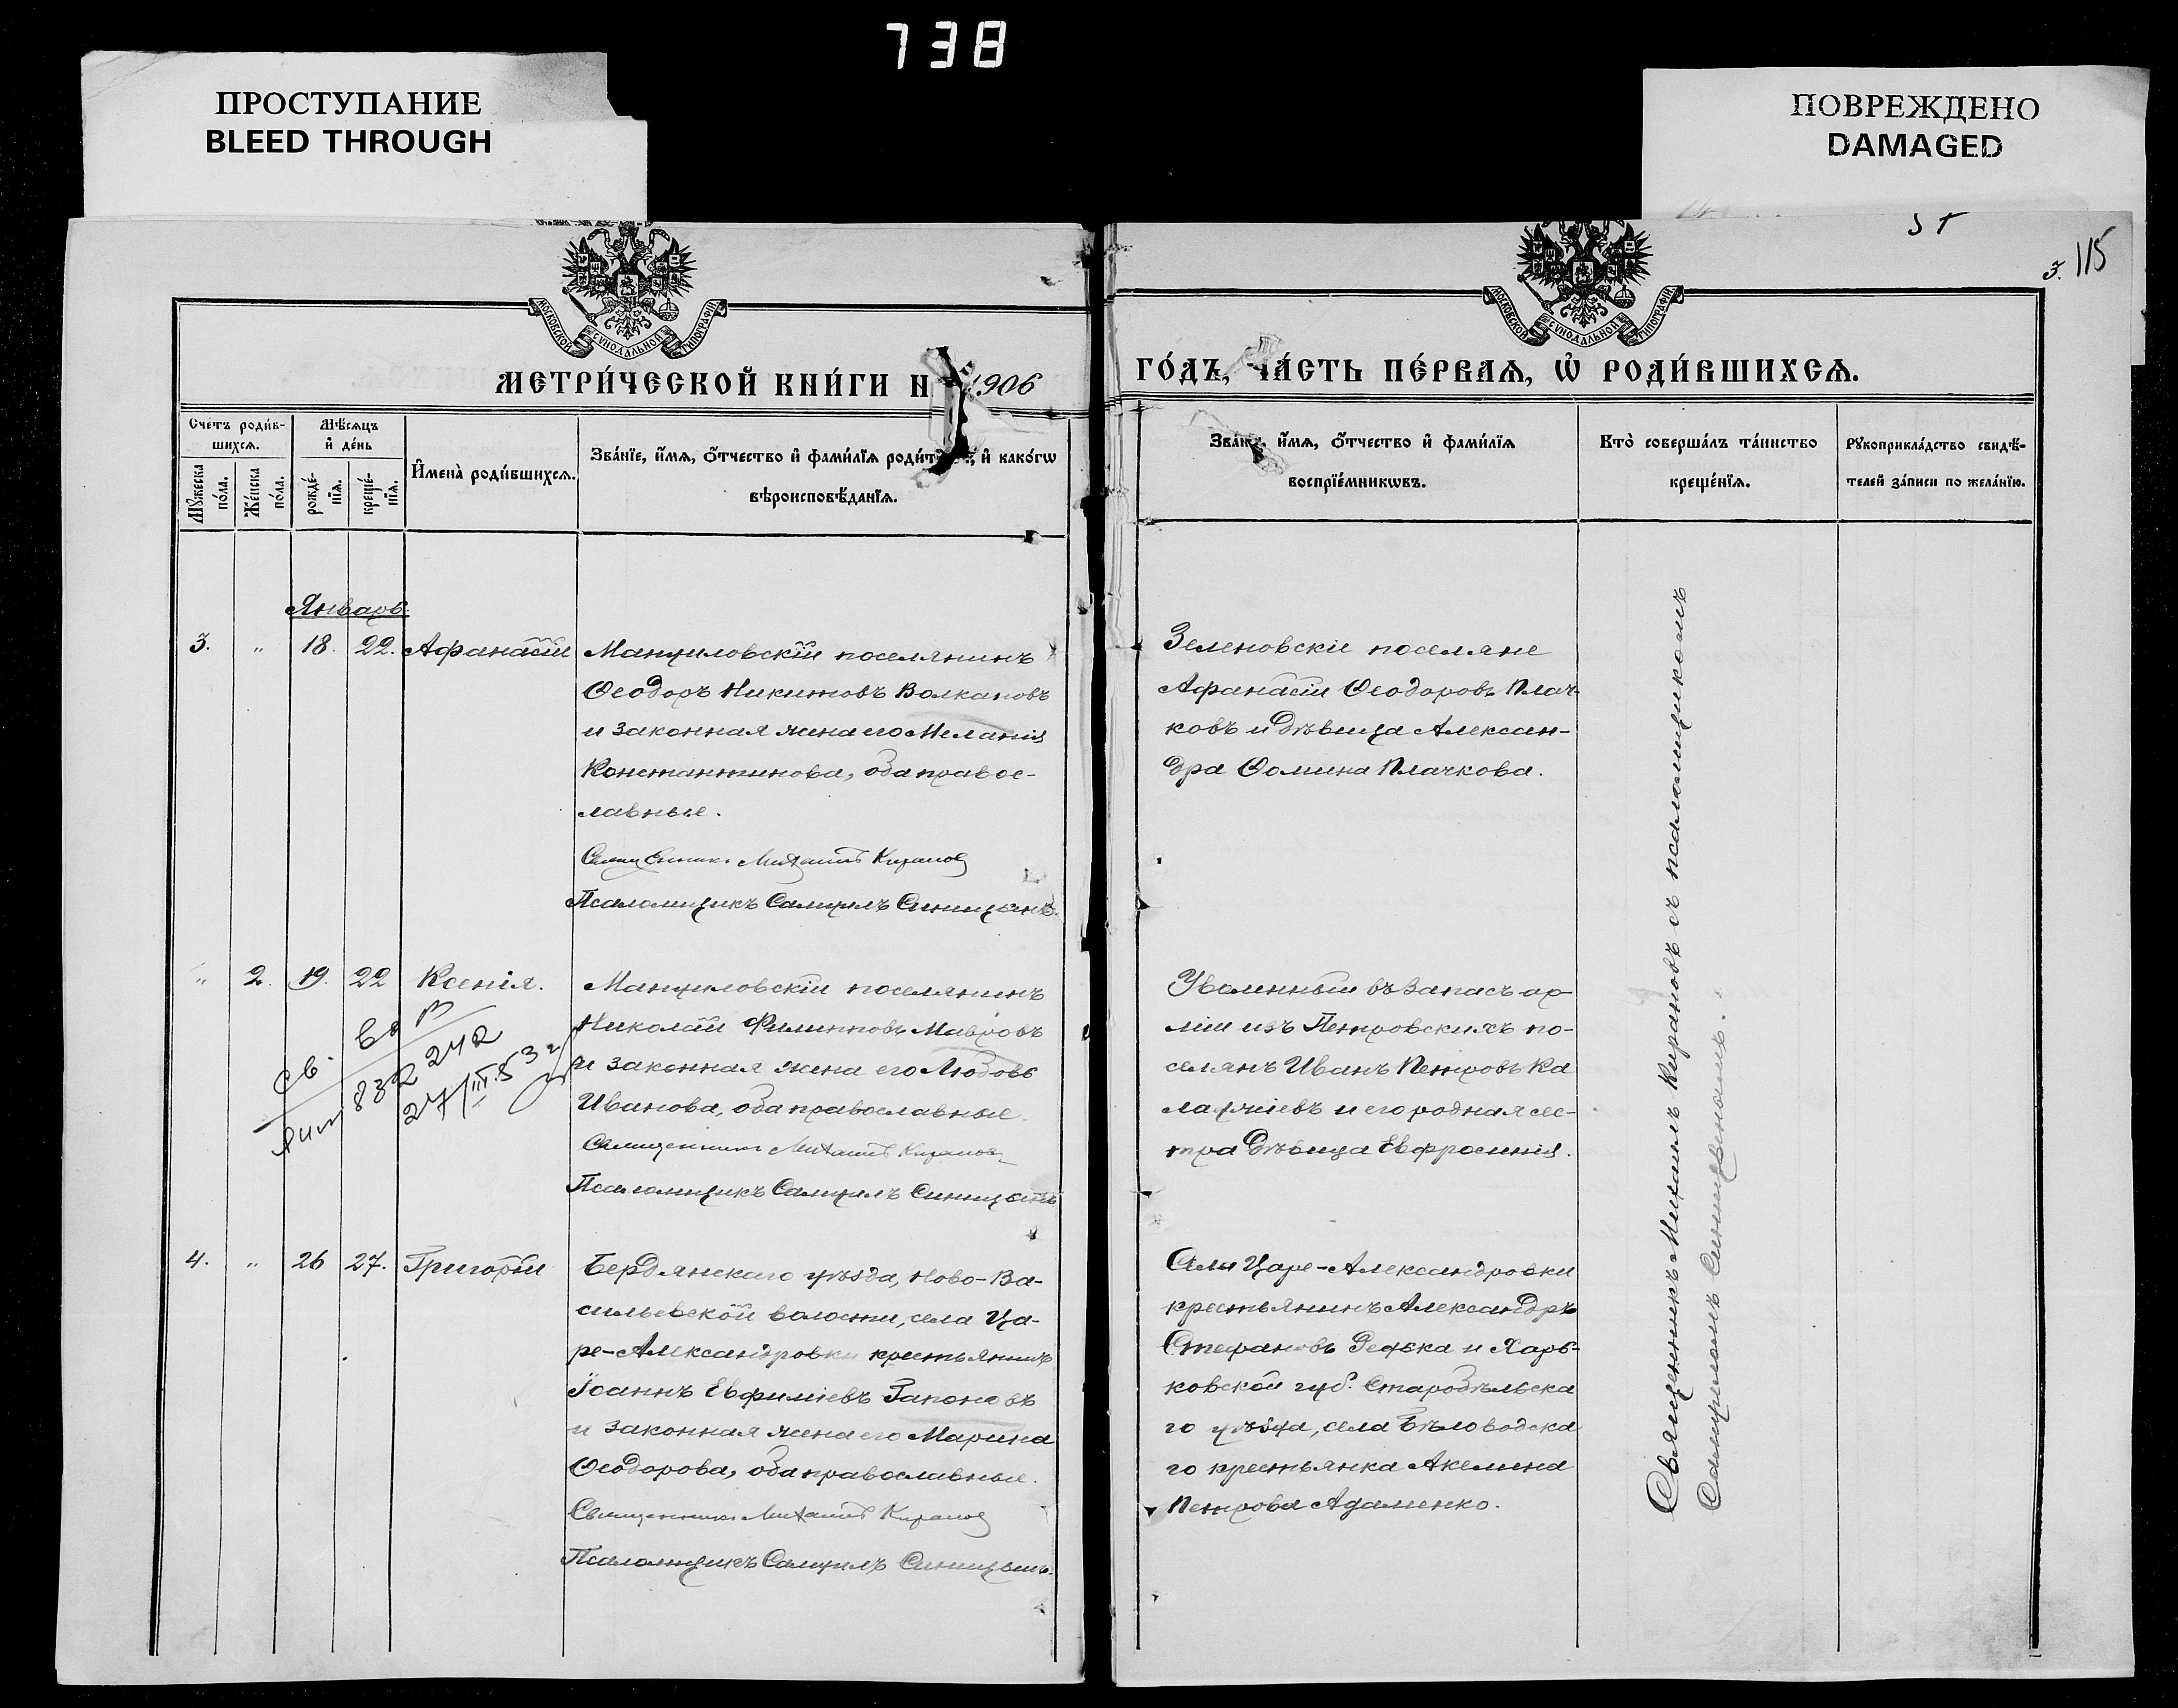 738
ПРОСТУПАНИЕ
BLEED THROUGH
ПОВРЕЖДЕНО
DAMAGED
З. 115
МОСКОВСКОЙ СѴНОДАЛЬНОЙ ТИПОГРАФІИ
МОСКОВСКОЙ СѴНОДАЛЬНОЙ ТИПОГРАФІИ
МЕТРИ́ЧЕСКОЙ КНИ́ГИ Н 1906
ГО́ДЪ, ЧА́СТЬ ПЕ́РВАѦ, Ѡ҆ РОДИ́ВШИХСѦ.
Сче́тъ роди́в-
шихсѧ.
Мꙋ́жеска по́ла.
Же́нска по́ла.
Мѣ́сѧцъ
и҆ де́нь
рожде́-
нїѧ.
креще́-
нїѧ.
И҆мена̀ роди́вшихсѧ.
Зва́нїе, и҆́мѧ, ѻ҆́тчество и҆ фами́лїѧ роди́т , и҆ како́гѡ
вѣроисповѣ́данїѧ.
Зва́н , и҆́мѧ, ѻ҆́тчество и҆ фами́лїѧ
воспрїе́мникѡвъ.
Кто̀ соверша́лъ та́инство
креще́нїѧ.
Рꙋкоприкла́дство свидѣ́-
телей за́писи по жела́нїю.
Январь.
3. " 18. 22. Афанасій
Мануиловскій поселянинъ
Ѳеодоръ Никитовъ Волкановъ
и законная жена его Меланія
Константинова, оба правос-
лавные.
Священникъ Михаилъ Кирановъ
Псаломщикъ Самуилъ Синицынъ.
Зеленовскіе поселяне
Афанасій Ѳеодоровъ Плач-
ковъ и дѣвица Алексан-
дра Ѳомина Плачкова.
" 2. 19. 22 Ксенія.
Мануиловскій поселянинъ
Николай Филипповъ Мавровъ
и законная жена его Любовь
Иванова, оба православные.
Священникъ Михаилъ Кирановъ
Псаломщикъ Самуилъ Синицынъ
Св.
832 242
27/III.53 г
Уволенный въ запасъ ар-
міи изъ Петровскихъ по-
селянъ Иванъ Петровъ Ка
лаучіевъ и его родная сес-
тра дѣвица Евфросинія.
4. " 26 27. Григорій
Бердянскаго уѣзда, Ново-Ва-
сильевской волости, села Ца-
ре-Александровки крестьянинъ
Іоаннъ Евфиміевъ Гапоновъ
и законная жена его Марина
Ѳеодорова, оба православные.
Священникъ Михаилъ Кирановъ
Псаломщикъ Самуилъ Синицынъ.
Села Царе-Александровки
крестьянинъ Александръ
Стефановъ Редька и Харь-
ковской губ. Старобѣльска
го уѣзда, села Бѣловодска
го крестьянка Акелина
Петрова Адаменко.
Священникъ Михаилъ Кирановъ съ псаломщикомъ
Самуиломъ Синицыномъ.